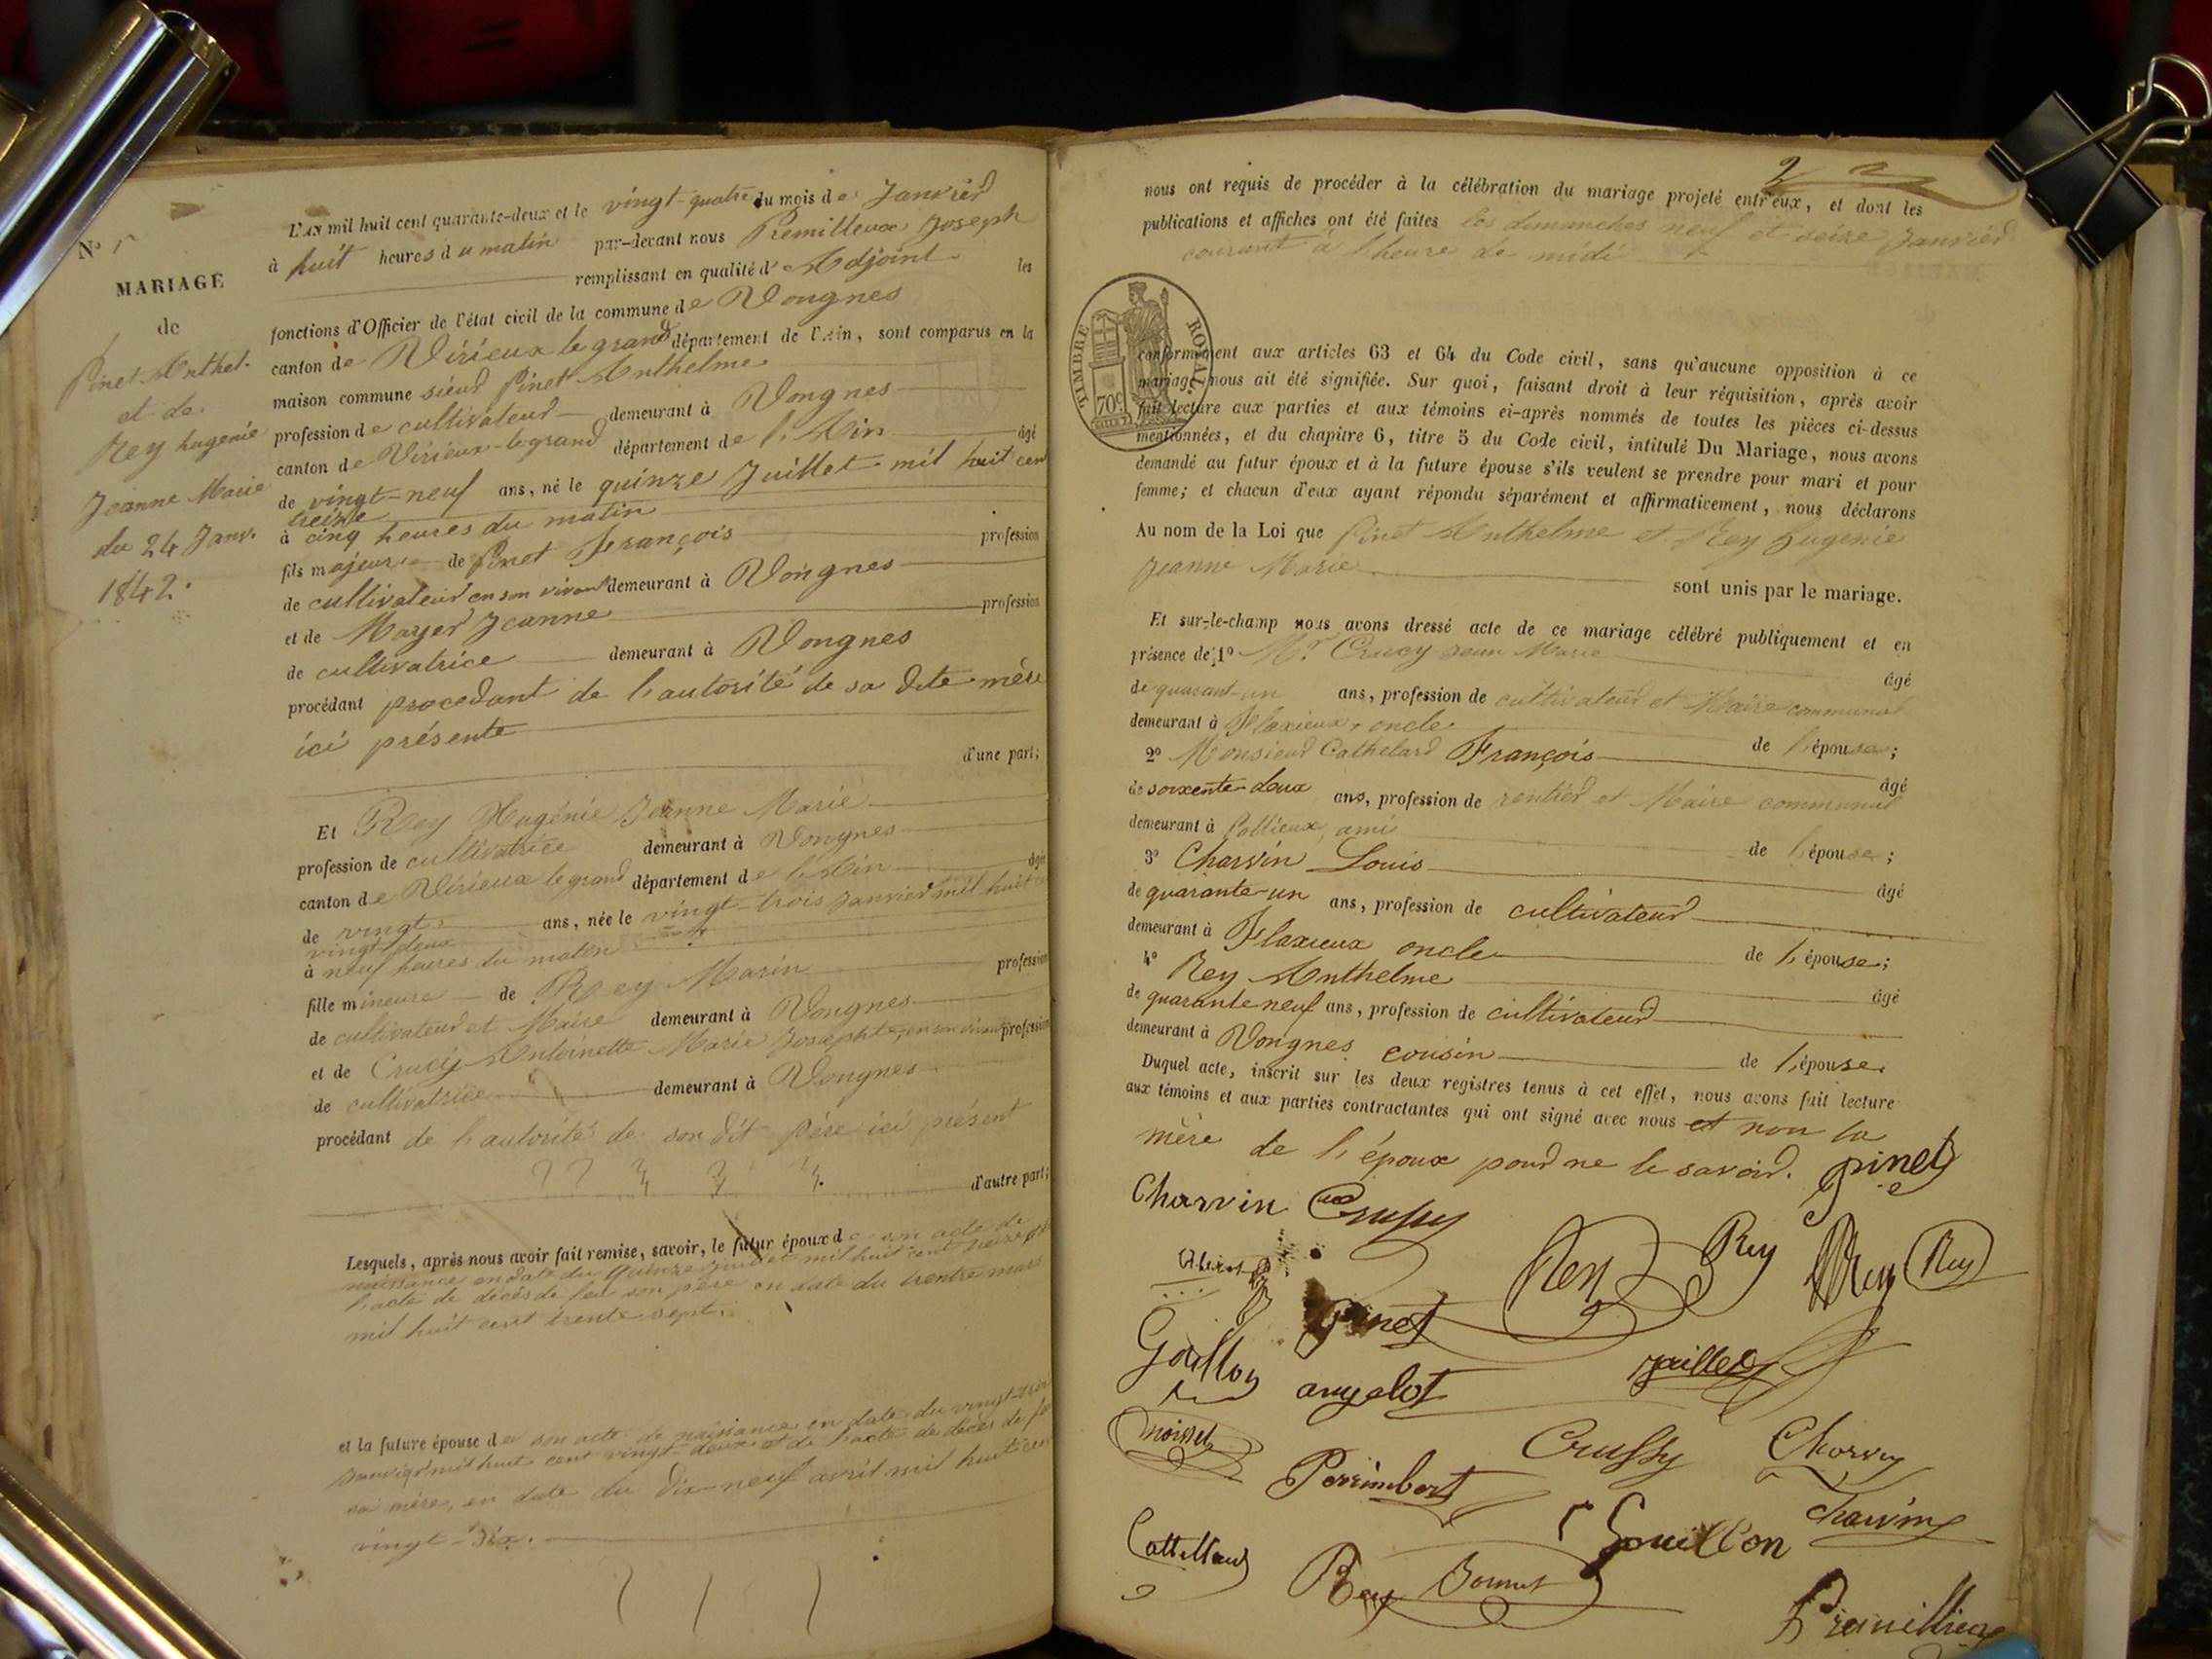 N° 1er
MARIAGE
de
Pinet Anthel.
et de
Rey Eugenie
Jeanne Marie
du 24 Janv.
1842.
L'AN mil huit cent quarante-deux et le vingt-quatre du mois de Janvier
à huit heures du matin par-devant nous Premilleux Joseph
remplissant en qualité d'Adjoint les
fonctions d'Officier de l'état civil de la commune de Vongnes
canton de Virieux le grand département de l'Ain, sont comparus en la
maison commune sieur Pinet Anthelme
profession de cultivateur demeurant à Vongnes
canton de Virieux-le grand département de l'Ain âgé
de vingt-neuf ans, né le quinze Juillet mil huit cent
treize
à cinq heures du matin
fils majeur de Pinet François profession
de cultivateur en son vivant demeurant à Vongnes
et de Mayer Jeanne profession
de cultivatrice demeurant à Vongnes
procédant procedant de l'autorité de sa dite mère
ici présente
d'une part;
Et Rey Eugénie Jeanne Marie
profession de cultivatrice demeurant à Vongnes
canton de Virieux le grand département de l'Ain âgé
de vingt ans, née le vingt-trois Janvier mil huit c
vingt deux
à neuf heures du matin
fille mineure de Rey Marin profession
de cultivateur et Maire demeurant à Vongnes
et de Crucy Antoinette Marie Josephte, en son vivant profession
de cultivatrice demeurant à Vongnes
procédant de l'autorité de son dit Père ici présent
d'autre part;
Lesquels, après nous avoir fait remise, savoir, le futur époux de son acte de
naissance en date du quinze Juillet mil huit cent treize et
l'acte de décès de feu son père en date du trentre mars
mil huit cent trente sept.
et la future épouse de son acte de naissance en date du vingt-trois
Janvier mil huit cent vingt-deux et de l'acte de décès de feu
sa mère, en date du dix-neuf avril mil huit cent
vingt-six.
2
nous ont requis de procéder à la célébration du mariage projeté entr'eux, et dont les
publications et affiches ont été faites les dimanches neuf et seize Janvier
courant à l'heure de midi
TIMBRE ROYAL
70c
conformément aux articles 63 et 64 du Code civil, sans qu'aucune opposition à ce
mariage nous ait été signifiée. Sur quoi, faisant droit à leur réquisition, après avoir
fait lecture aux parties et aux témoins ci-après nommés de toutes les pièces ci-dessus
mentionnées, et du chapitre 6, titre 5 du Code civil, intitulé Du Mariage, nous avons
demandé au futur époux et à la future épouse s'ils veulent se prendre pour mari et pour
femme; et chacun d'eux ayant répondu séparément et affirmativement, nous déclarons
Au nom de la Loi que Pinet Anthelme et Rey Eugénie
Jeanne Marie sont unis par le mariage.
Et sur-le-champ nous avons dressé acte de ce mariage célébré publiquement et en
présence de 1° Mr. Crucy Jean Marie âgé
de quarant-un ans, profession de cultivateur et Maire communal
demeurant à Flaxieux, oncle de l'épouse;
2° Monsieur Cathelard François âgé
de soixente-deux ans, profession de rentier et Maire communal
demeurant à Pollieux, ami de l'épouse;
3° Charvin Louis âgé
de quarante-un ans, profession de cultivateur
demeurant à Flaxieux oncle de l'épouse;
4° Rey Anthelme âgé
de quarante neuf ans, profession de cultivateur
demeurant à Vongnes cousin de l'épouse.
Duquel acte, inscrit sur les deux registres tenus à cet effet, nous avons fait lecture
aux témoins et aux parties contractantes qui ont signé avec nous et non la
mère de l'époux pour ne le savoir. pinet
Charvin Crussy
Rey Rey Rey Rey
pinet
Goillon angelot jaillet
moisset Perrimbert Crussy Charvin
Cattelard Rey Bonnet Gouillon charvin
Premillieux